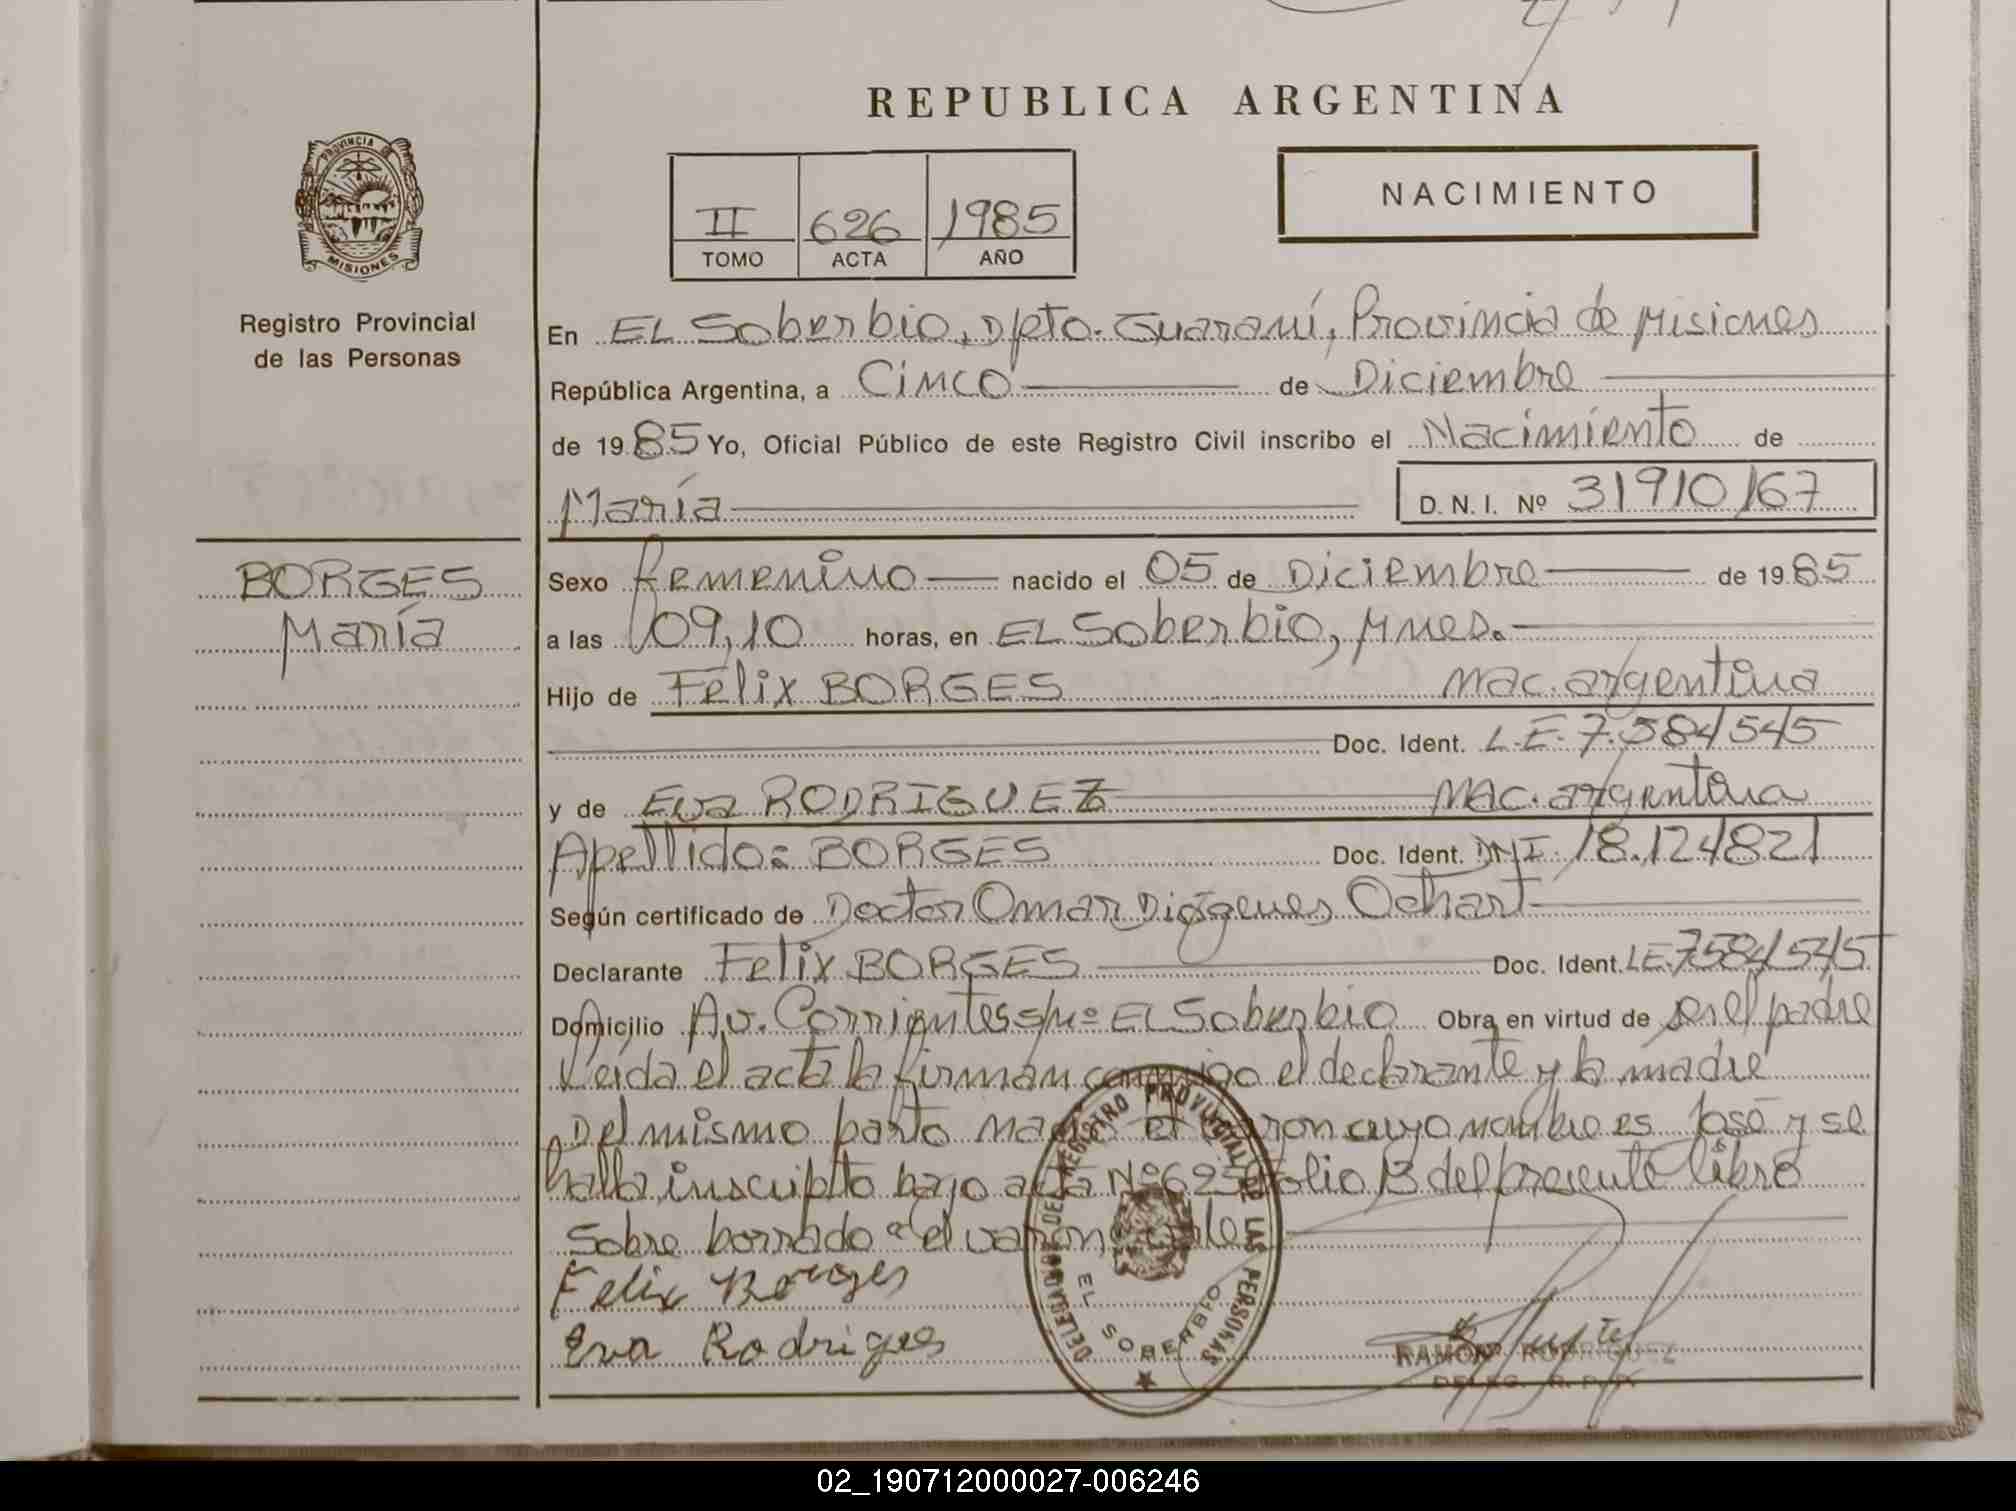 REPUBLICA ARGENTINA
PROVINCIA DE
MISIONES
Registro Provincial
de las Personas
II 626 1985
TOMO ACTA AÑO
NACIMIENTO
En EL Soberbio, Dpto. Guaraní, Provincia de Misiones
República Argentina, a Cinco de Diciembre
de 1985 Yo, Oficial Público de este Registro Civil inscribo el Nacimiento de
María D. N. I. Nº 31910167
BORGES
María
Sexo Femenino nacido el 05 de Diciembre de 1985
a las 09,10 horas, en EL Soberbio, Mnes.
Hijo de Felix BORGES nac. argentina
Doc. Ident. L.E. 7.584545
y de Eva RODRIGUEZ nac. argentina
Apellido: BORGES Doc. Ident. DNI. 18.124821
Según certificado de Doctor Omar Diógenes Ochart
Declarante Felix BORGES Doc. Ident. LE.7584545
Domicilio Av. Corrientes s/nº EL Soberbio Obra en virtud de ser el padre
Leída el acta la firman conmigo el declarante y la madre
Del mismo parto nació el varon cuyo nombre es José y se
halla inscripto bajo acta Nº 625 folio 13 del presente libro
Sobre borrado "el varon" vale
Felix Borges
Eva Rodrigues
DELEGACION DEL REGISTRO PROVINCIAL DE LAS PERSONAS
EL SOBERBIO
RAMON RODRIGUEZ
DELEG. R. P. P.
02_190712000027-006246